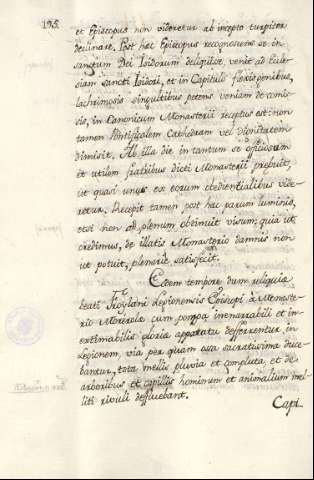 195.
et Episcopus non videretur ab incepto turpiter
declinare. Post hac Episcopus recognoscens se in
sanctum Dei Isidorum deliquisse, venit ad Eccle-
siam sancti Isidori, et in Capitulo flexis genibus,
lachrimosis singultibus petens veniam de comis-
sis, in Canonicum Monasterii receptus est: non
tamen Pontificalem Cathedram vel dignitatem
dimisit. Ab illa die in tantum se officiosum
et utilem fratribus dicti Monasterii prebuit,
ut quasi unus ex eorum obedientialibus vide-
retur. Recepit tamen post hac parum luminis,
etsi non ad plenum obtinuit visum; quia ut
credimus, de illatis Monasterio damnis non
ut potuit, plenarie satisfecit.
Eodem tempore dum reliquiæ
beati Froylani Legionensis Episcopi a Monaste-
rio Morerola cum pompa inenarrabili et in-
extimabilis gloria apparatu defferrentur in
Legionem, via per quam ossa sacratissima duce-
bantur, tota mellis pluvia et compluta, et de
arboribus et capillis hominum et animalium mel-
liti rivuli deffluebant.
Capi